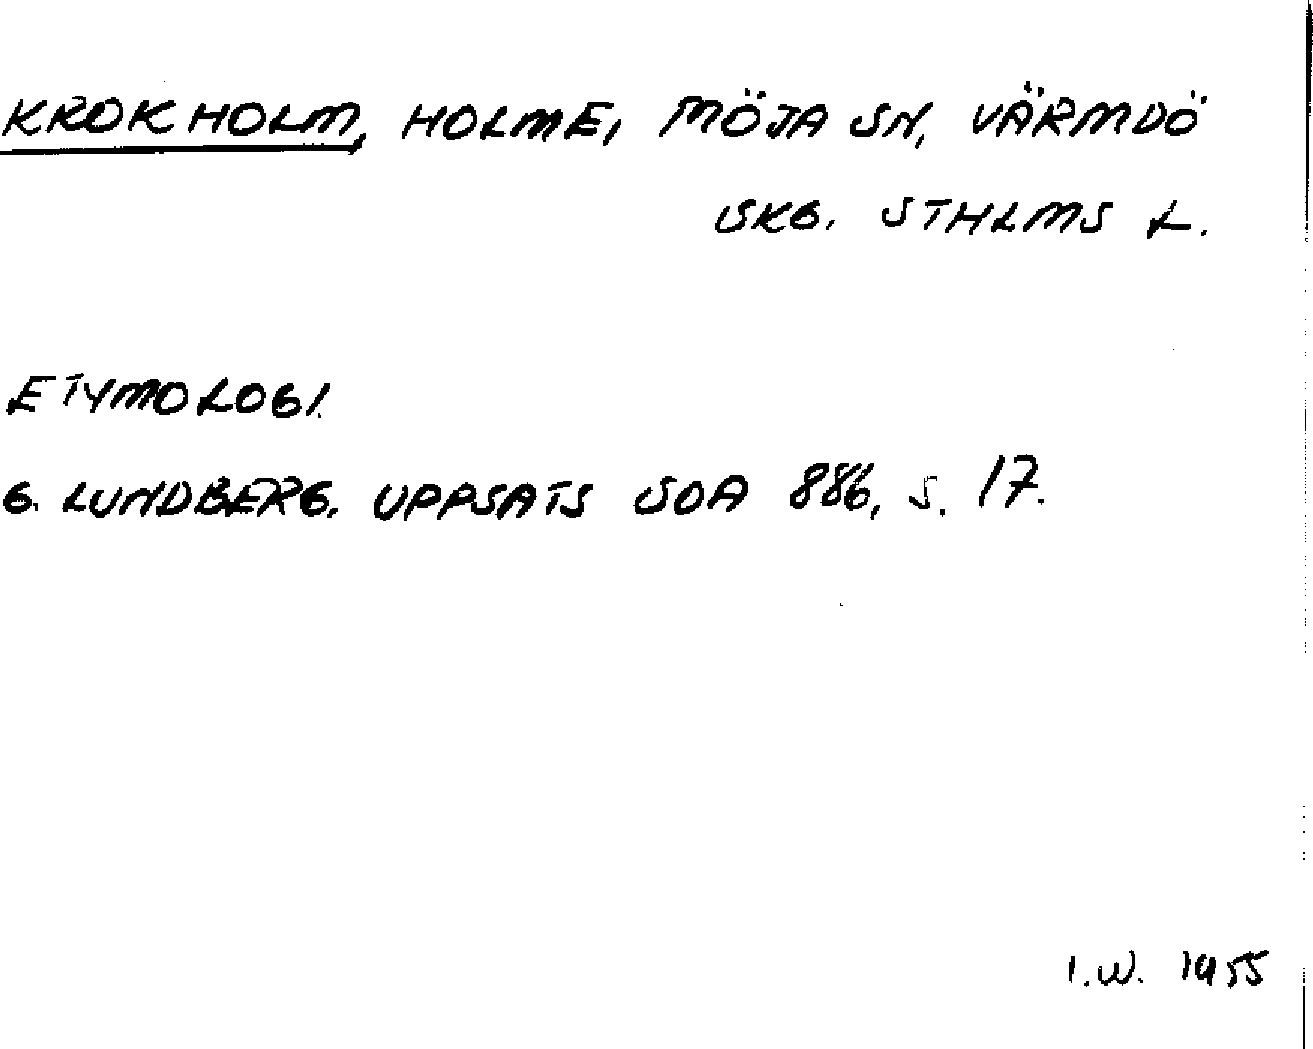 KROKHOLM, HOLME, MÖJA SN, VÄRMDÖ
SKG. STHLMS L.
ETYMOLOGI.
G. LUNDBERG. UPPSATS SOA 886, S. 17.
I.W. 1955